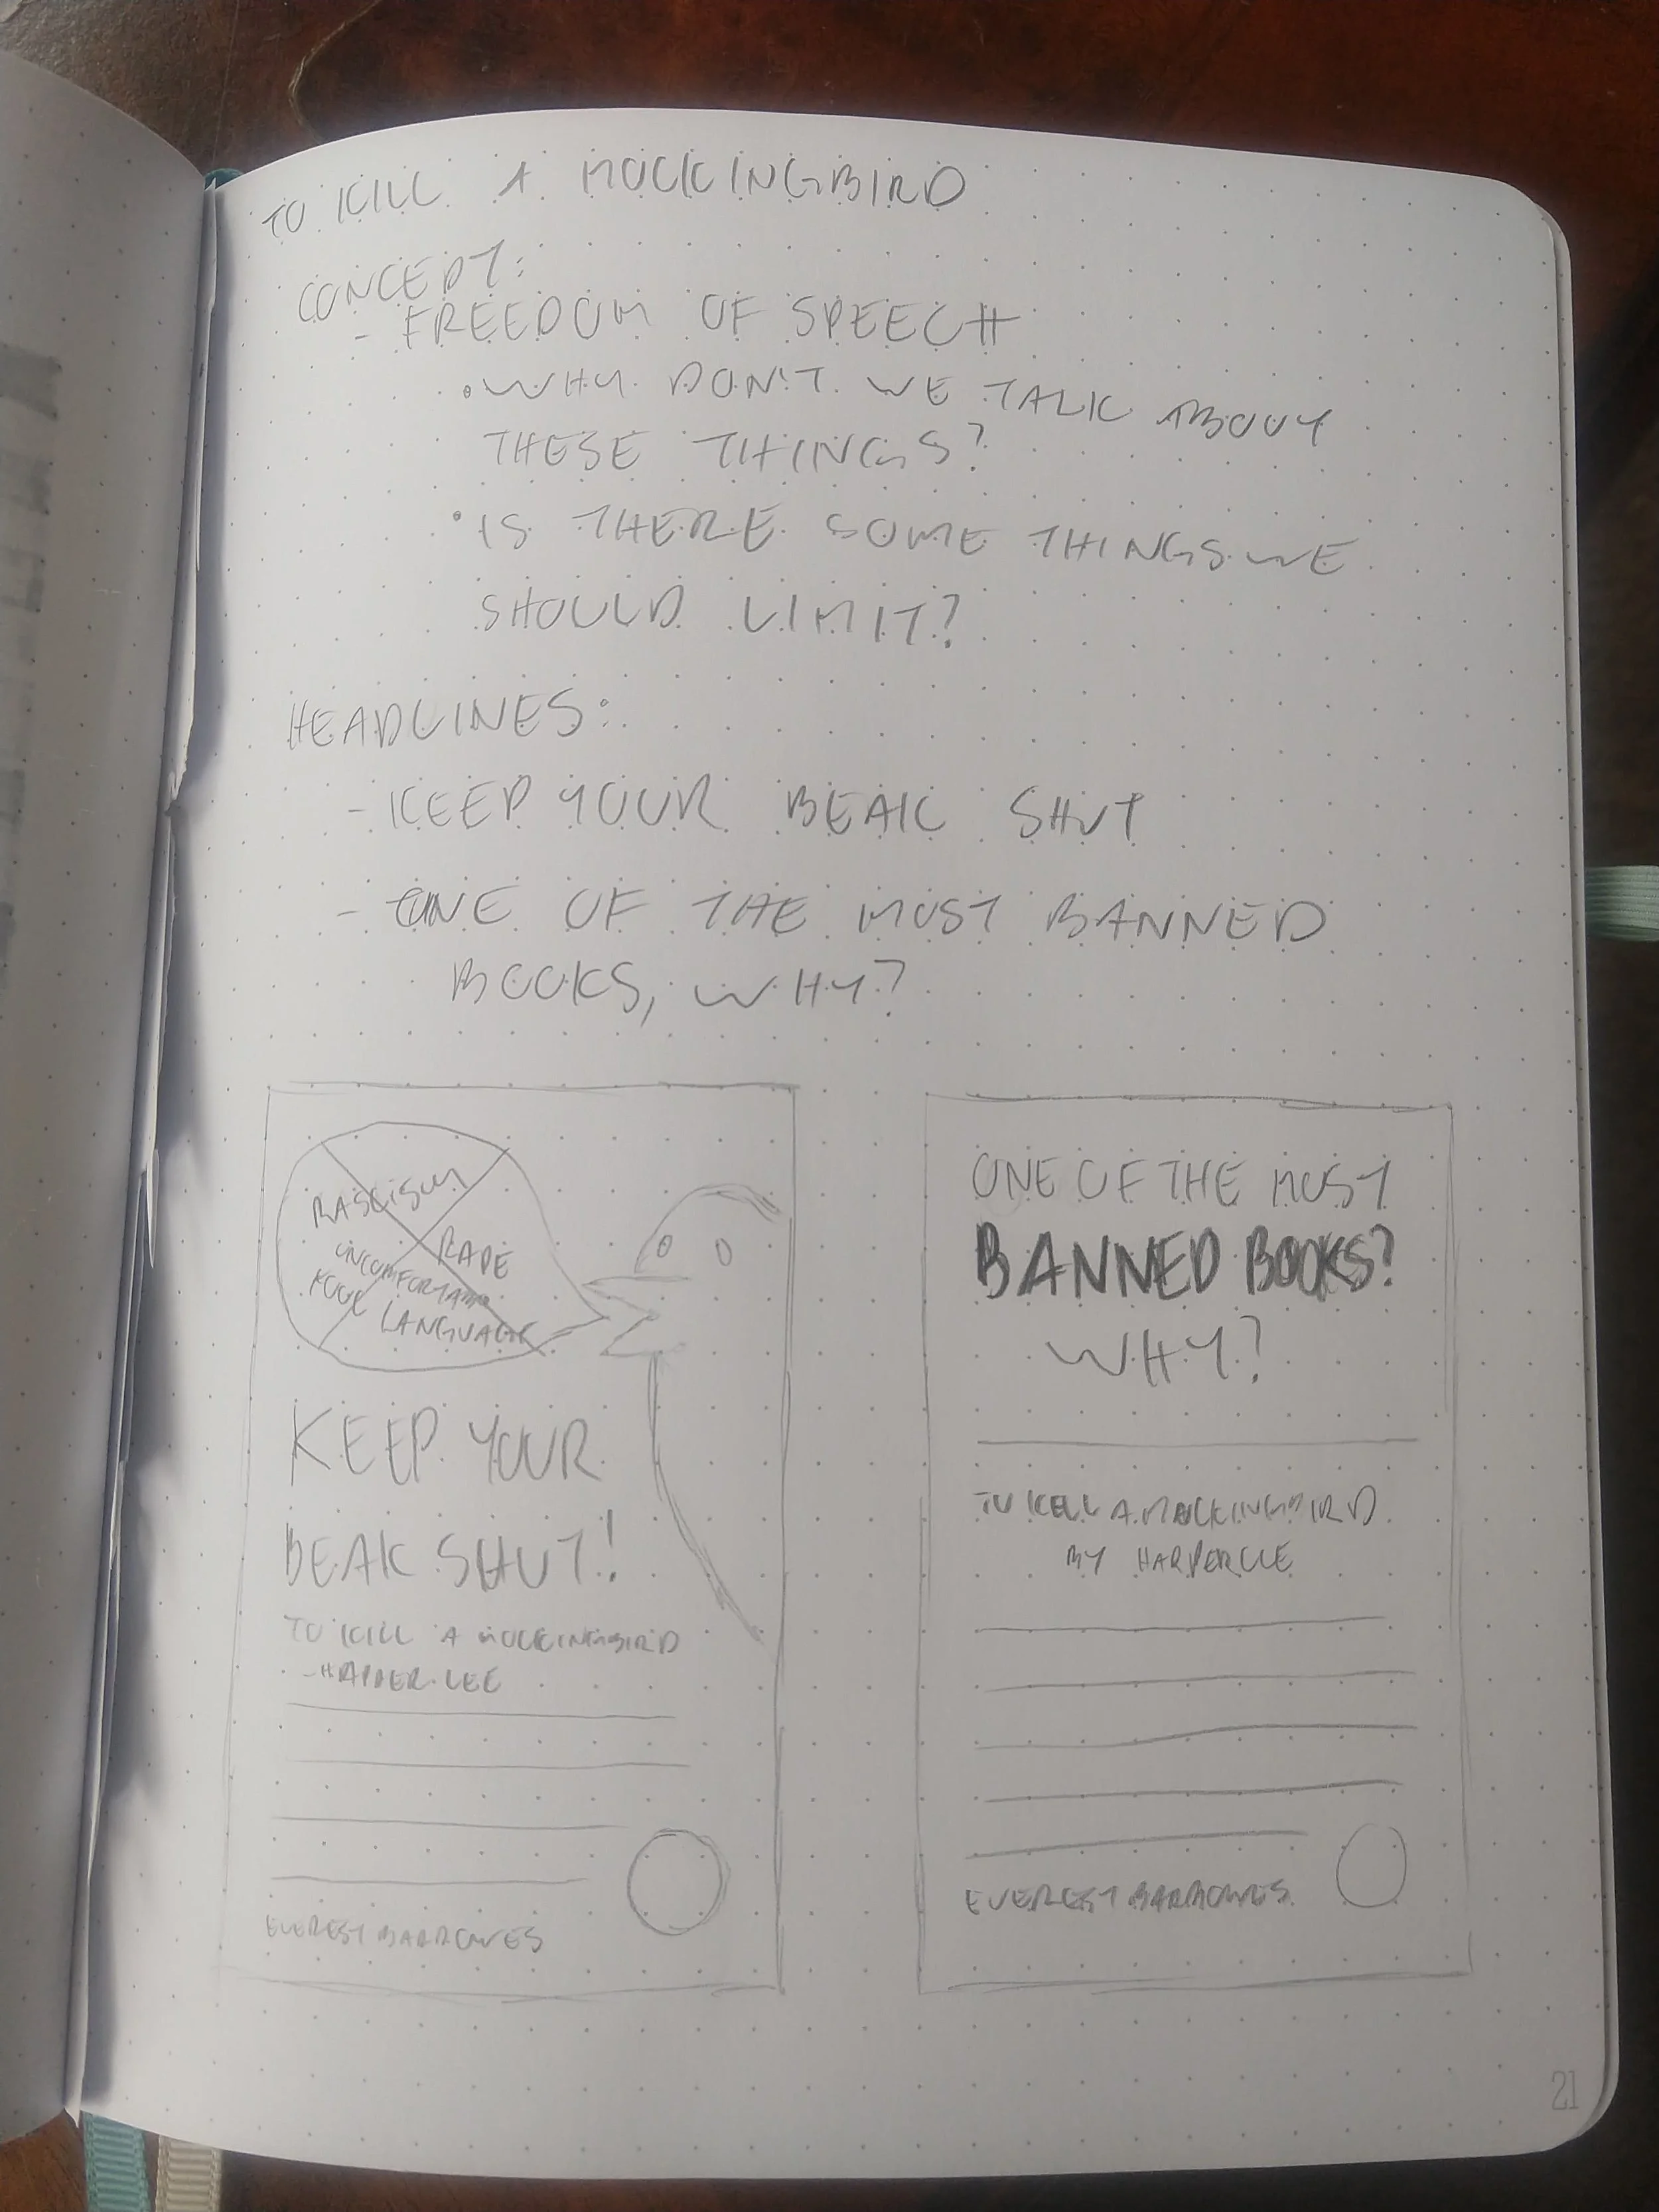 TO KILL A MOCKINGBIRD
CONCEPT:
- FREEDOM OF SPEECH
• WHY DON'T WE TALK ABOUT
THESE THINGS?
• IS THERE SOME THINGS WE
SHOULD LIMIT?
HEADLINES:
- KEEP YOUR BEAK SHUT
- ONE OF THE MOST BANNED
BOOKS, WHY?
RASCISM
RAPE
UNCOMFORTABLE
FOUL
LANGUAGE
KEEP YOUR
BEAK SHUT!
TO KILL A MOCKINGBIRD
- HARPER LEE
EVEREST BARROWES
ONE OF THE MOST
BANNED BOOKS?
WHY?
TO KILL A MOCKINGBIRD
BY HARPER LEE
EVEREST BARROWES
21